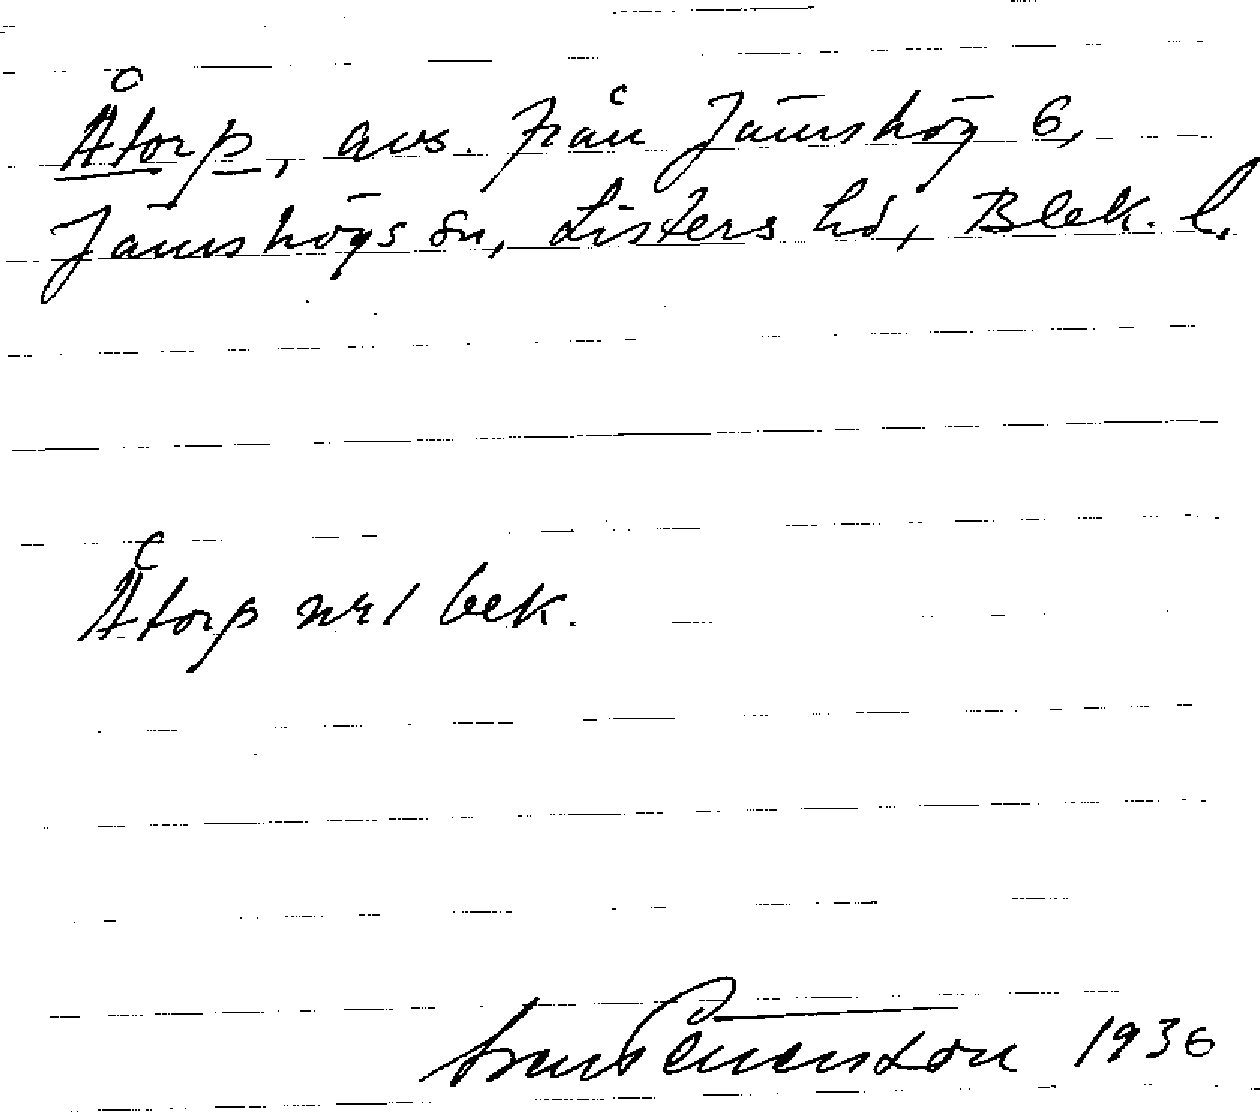 Åtorp, avs. från Jämshög 6,
Jämshögs sn, Listers hd, Blek. l.
Åtorp nr 1 bek.
1936